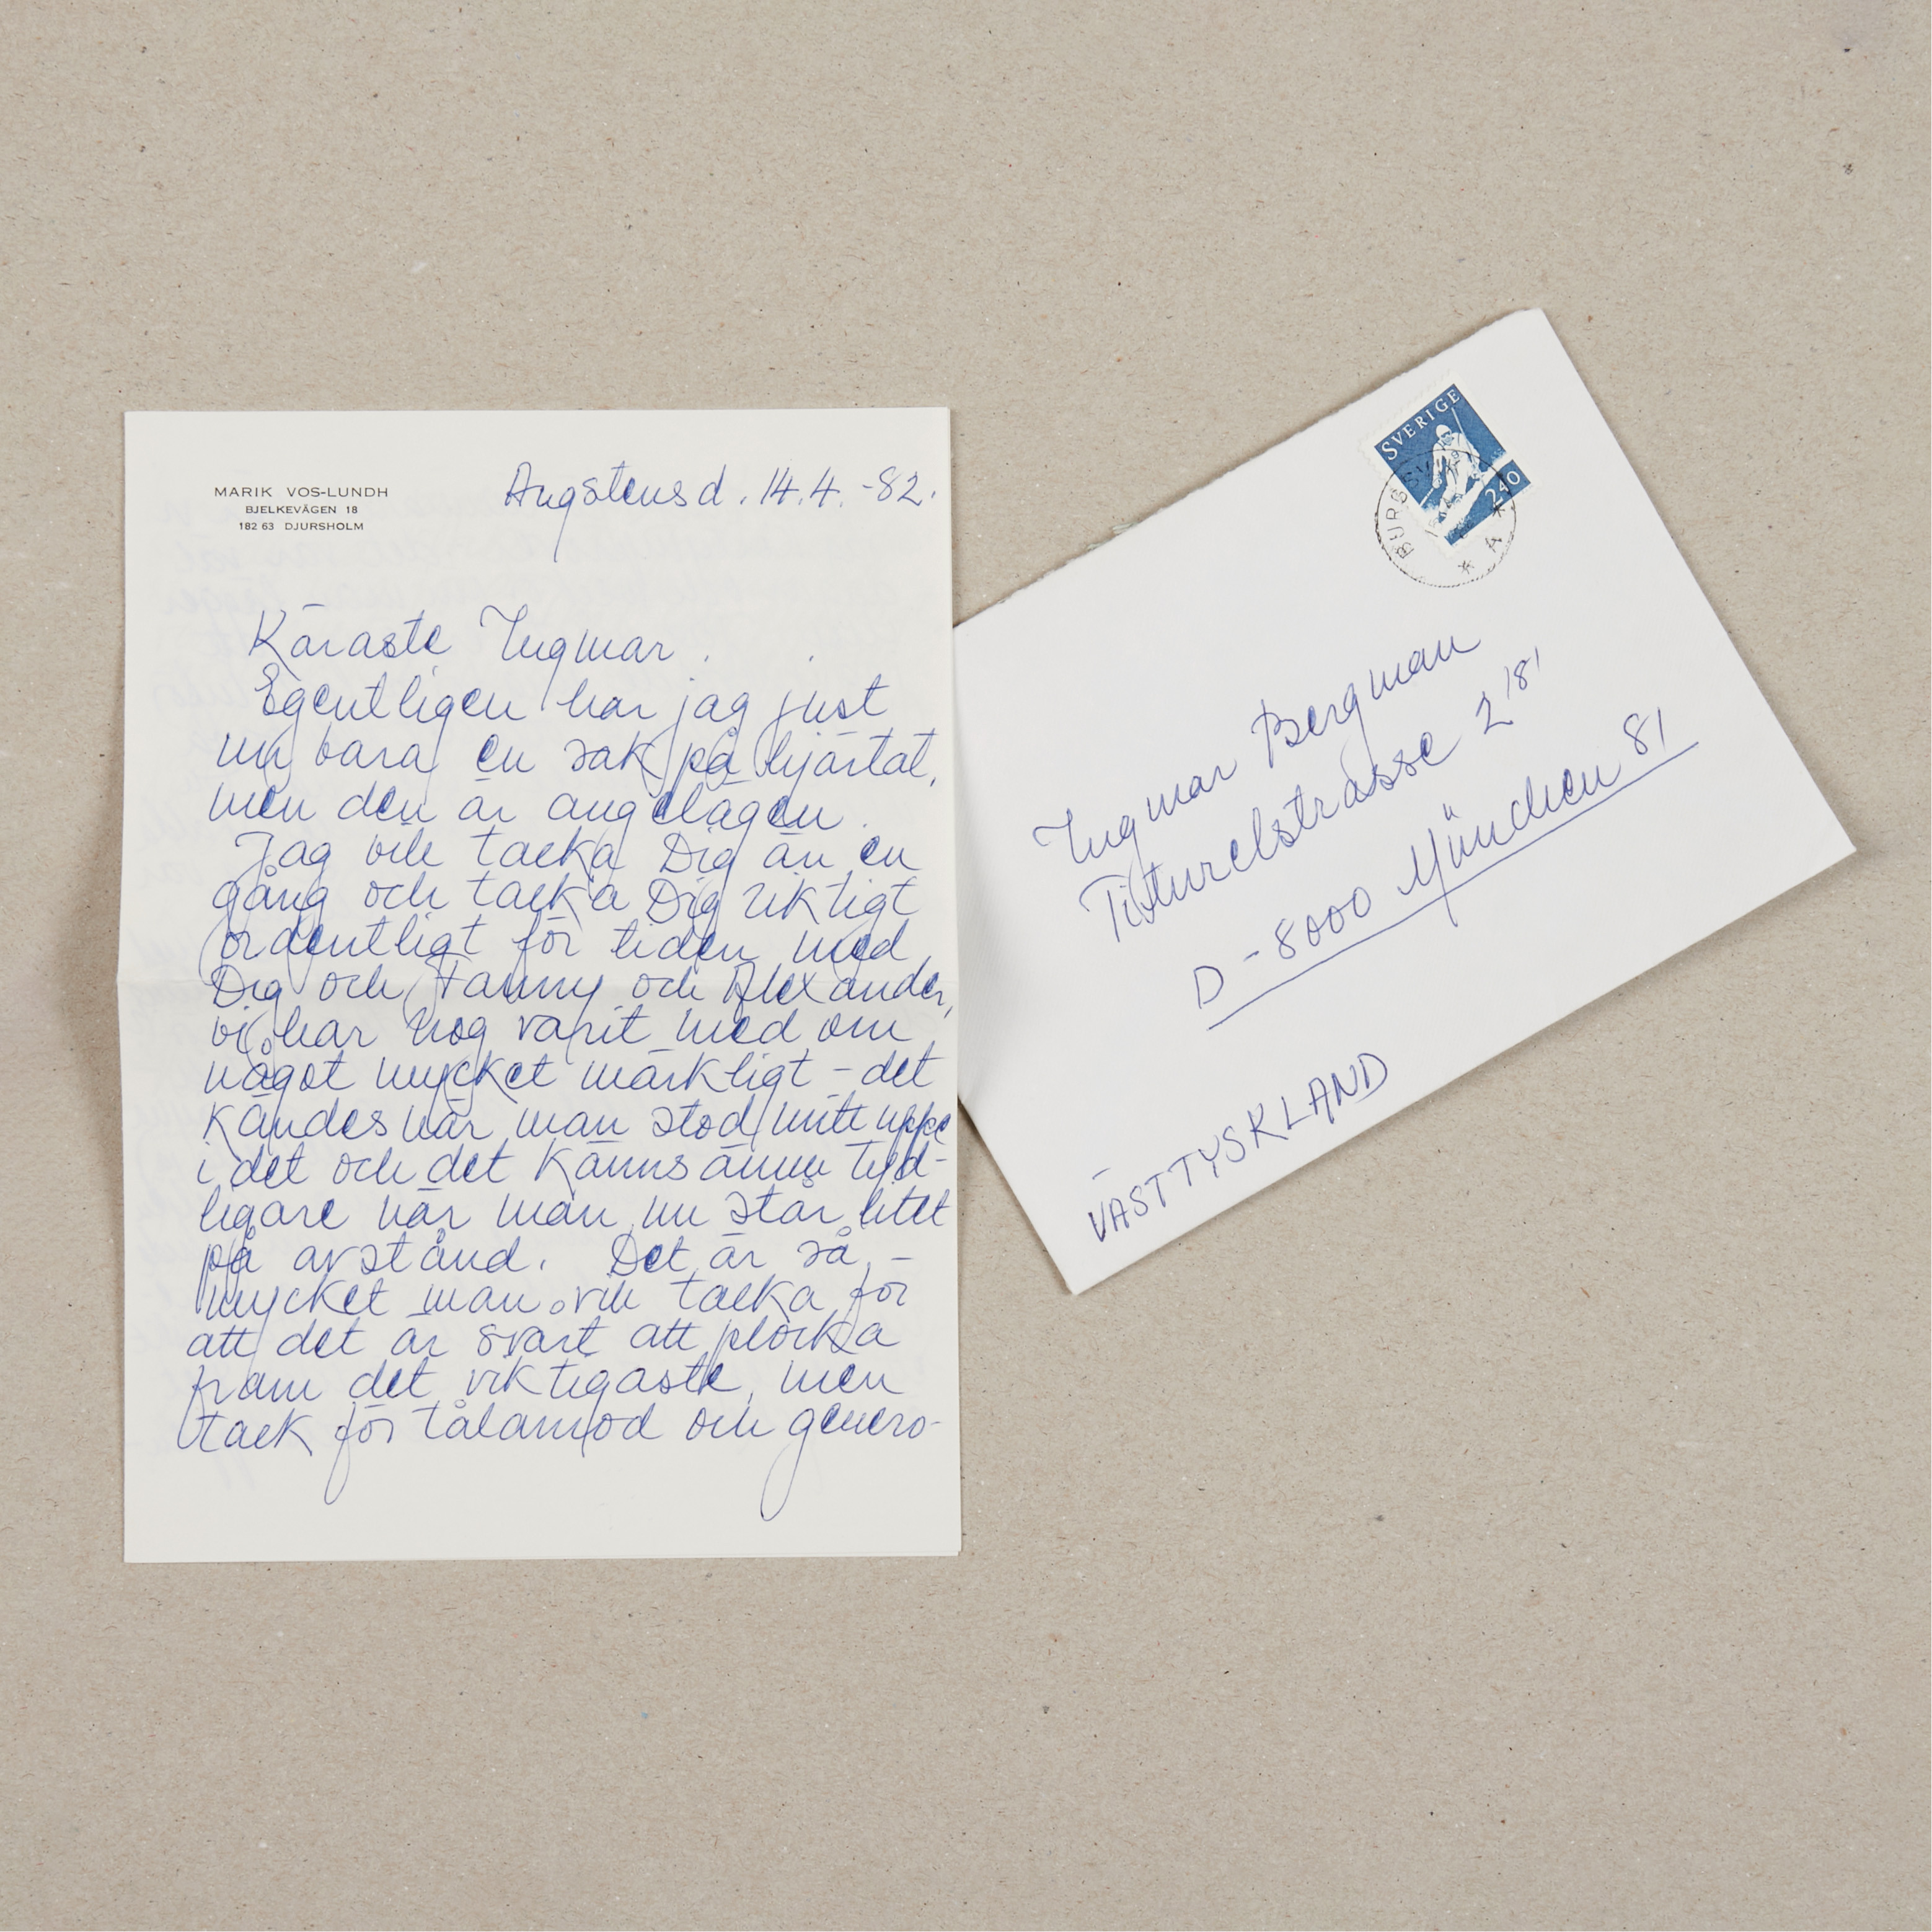 MARIK VOS-LUNDH
BJELKEVÄGEN 18
182 63 DJURSHOLM
Angstens d. 14.4.-82.
Käraste Ingmar.
Egentligen har jag just
nu bara en sak på hjärtat,
men den är angelägen.
Jag vill tacka Dig än en
gång och tacka Dig riktigt
ordentligt för tiden med
Dig och Fanny och Alexander,
vi har nog varit med om
något mycket märkligt – det
kändes när man stod mitt uppe
i det och det känns ännu tyd-
ligare när man nu står litet
på avstånd. Det är så –
mycket man vill tacka för
att det är svårt att plocka
fram det viktigaste, men
tack för tålamod och genero-
SVERIGE
240
BURGSVIK
A
Ingmar Bergman
Titurelstrasse 2 /8/
D-8000 München 81
VÄSTTYSKLAND